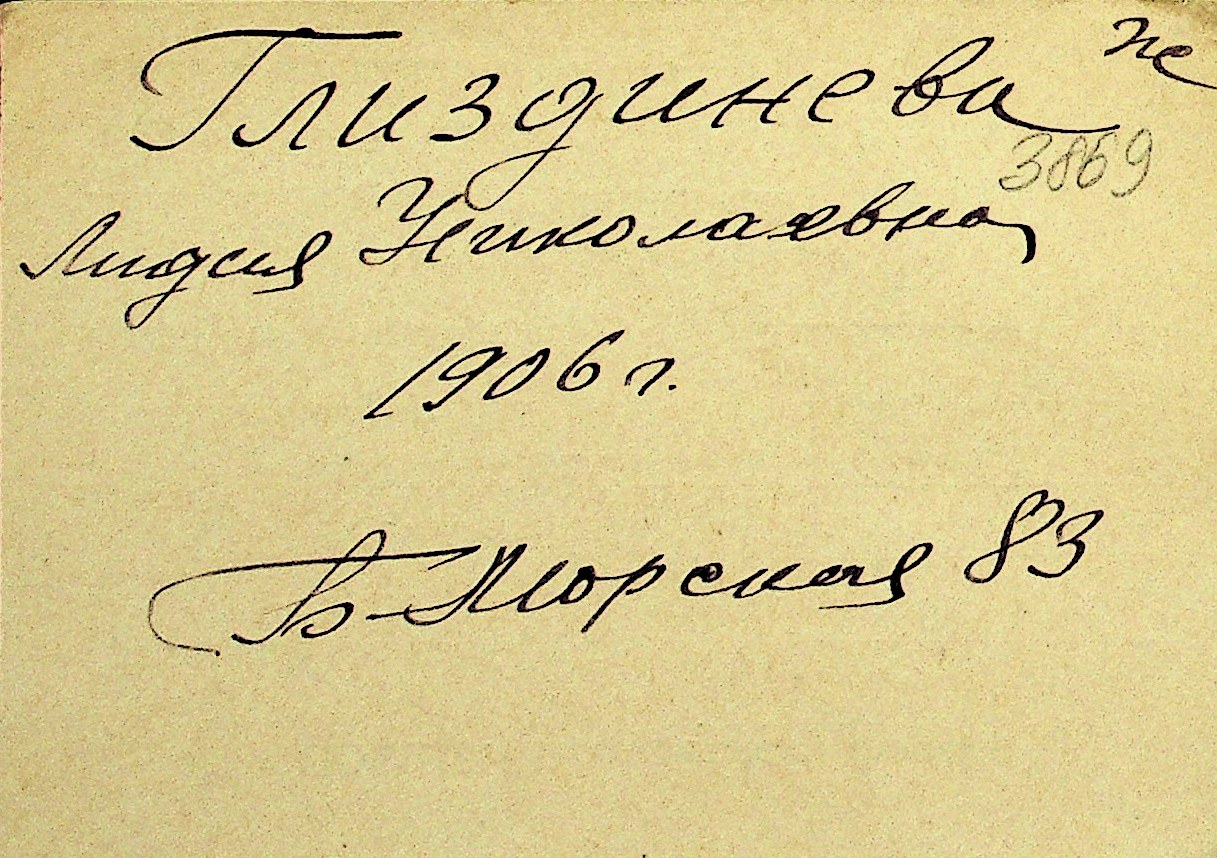 Глиздинева
3869
Лидия Николаевна
1906 г.
Б-Морская 83